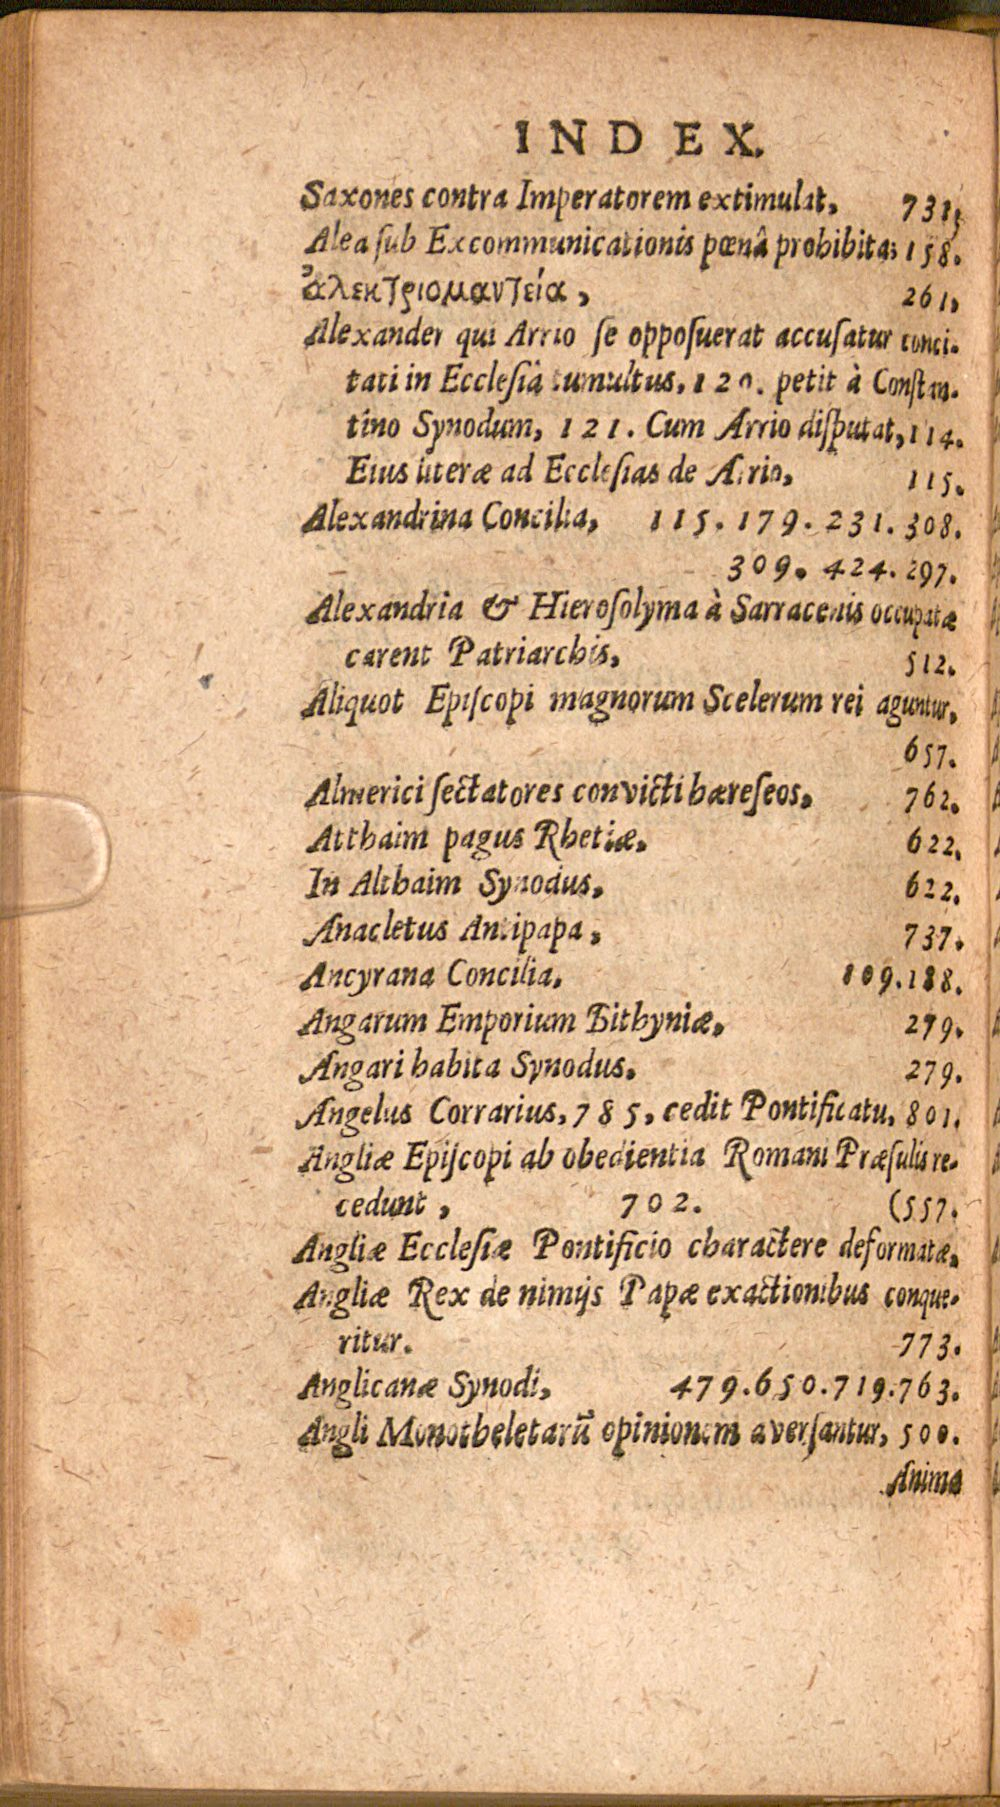 INDEX.
Saxones contra Imperatorem extimulat, 731,
Alea ſub Excommunicationis pœnâ prohibita, 158.
ἀλεκτριομαντεία, 261,
Alexander qui Arrio ſe oppoſuerat accuſatur conci-
tati in Eccleſiâ tumultus, 120. petit à Conſtan-
tino Synodum, 121. Cum Arrio diſputat, 114.
Eius literæ ad Eccleſias de Arrio, 115.
Alexandrina Concilia, 115. 179. 231. 308.
309. 424. 297.
Alexandria & Hieroſolyma à Sarracenis occupatæ
carent Patriarchis, 512.
Aliquot Epiſcopi magnorum Scelerum rei aguntur,
657.
Almerici ſectatores convicti hæreſeos, 762.
Atthaim pagus Rhetiæ, 622.
In Althaim Synodus, 622.
Anacletus Antipapa, 737.
Ancyrana Concilia, 109. 188.
Angarum Emporium Bithyniæ, 279.
Angari habita Synodus. 279.
Angelus Corrarius, 785, cedit Pontificatu, 801.
Angliæ Epiſcopi ab obedientia Romani Præſulis re-
cedunt, 702. (557.
Angliæ Eccleſiæ Pontificio charactere deformatæ,
Angliæ Rex de nimijs Papæ exactionibus conque-
ritur. 773.
Anglicanæ Synodi, 479. 650. 719. 763.
Angli Monotheletarũ opinionem averſantur, 500.
Anima